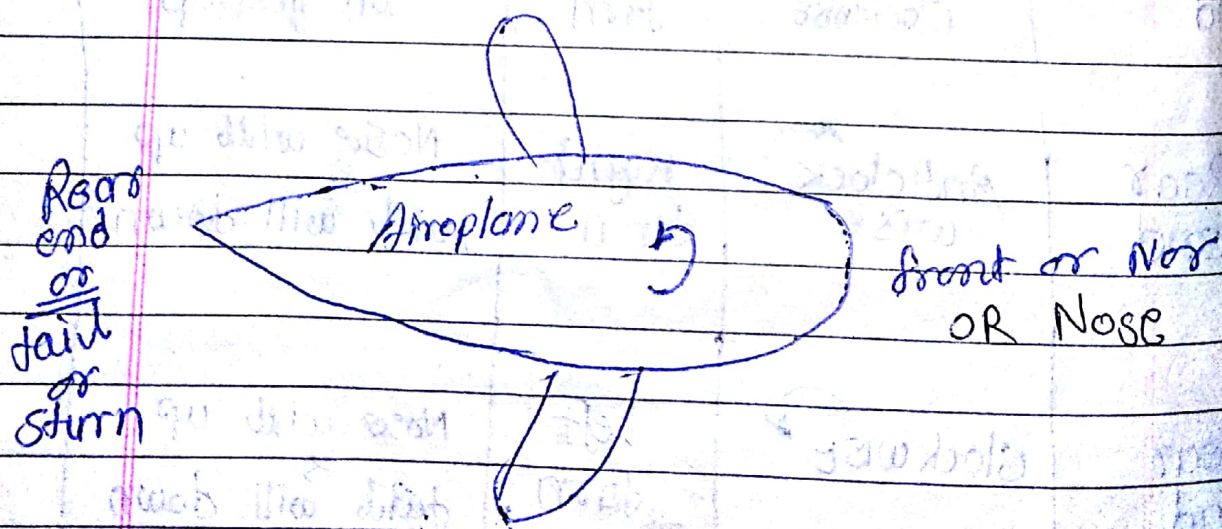 Rear
end
or
tail
or
sturn
Airoplane
front or Nor
OR Nose